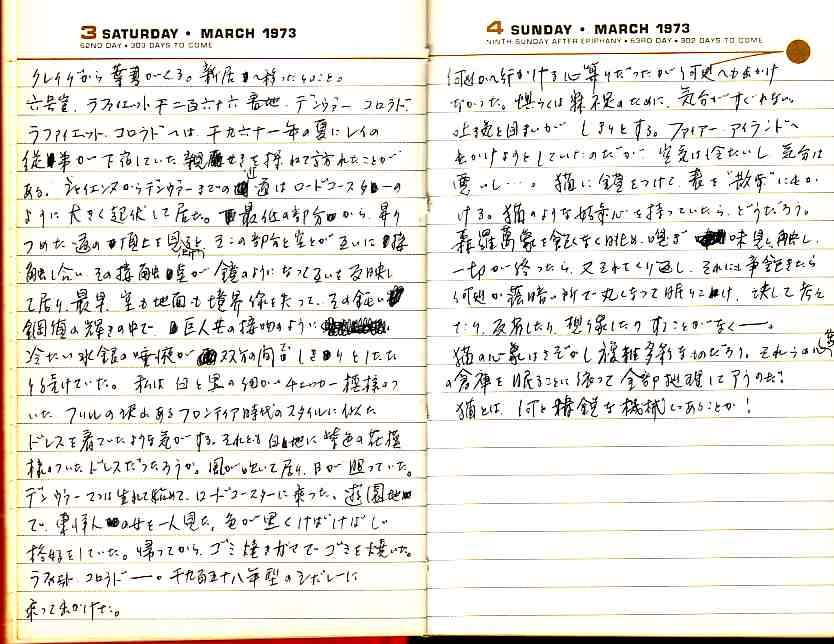 3 SATURDAY • MARCH 1973
62ND DAY • 303 DAYS TO COME
クレイグから葉書がくる。新居へ移ったとのこと。
六号室、ラファイエット 千二百六十六番地・デンヴァー コロラド
ラファイエット・コロラドへは、千九六十一年の夏にレイの
従事が下宿していた
ある。シャイエンヌからデンヴァーまでの道はロードコースターの
ように大きく起伏して居た。最低の部分から、昇り
つめた道の頂上を見ると、そこの部分と空とが互いに接
触し合い、その接触の空が鏡のようになって互いを反映し
て居り、最早、空も地面も境界線を失って、その鈍い
鋼鉄の輝きの中で、巨人共の接吻のように
冷たい水銀の唾液が 双方の間を
り続けていた。私は白と黒の細かいチェッカー模様の
いた、フリルの沢山あるフロンティア時代のスタイルに似た
ドレスを着ていたような気がする。それとも白地に紫色の花模
様のついたドレスだったろうか。風が吹いて居り、日が照っていた。
デンヴァーでは生れて始めて、ロードコースターに乗った。遊園地
で、東洋人の女を一人見た。色が黒くけばけばしい
格好をしていた。帰ってから、ゴミ焼きガマでゴミを焼いた。
コロラドー。千九百五十八年型のシボレーに
乗って出かけた。
4 SUNDAY • MARCH 1973
NINTH SUNDAY AFTER EPIPHANY • 63RD DAY • 302 DAYS TO COME
何処かへ行かける心算りだったが何処へも出かけ
なかった。恐らくは寐不足のために、気分がすぐれない。
吐き気と目まいが しきりとする。ファイアー・アイランドへ
出かけようとしていたのだが 空気は冷たいし 気分は
悪いし…。猫に鎖をつけて、表を“散歩”に出か
ける。猫のような好奇心を持っていたら、どうだろう。
森羅萬象を飽くなく眺め、嗅ぎ 味見し、触し、
一切が終ったら、又それをくり返し、それにも
何処か薄暗い所で丸くなって眠りこけ、決して考え
たり、反芻したり、想う象したりすることがなくー。
猫の心象はさぞかし複雑多彩なものだろう。それらの心象
の倉庫を眠ることに依って全部処理して了うのだ!
猫とは、何と精鋭な機械であることか!